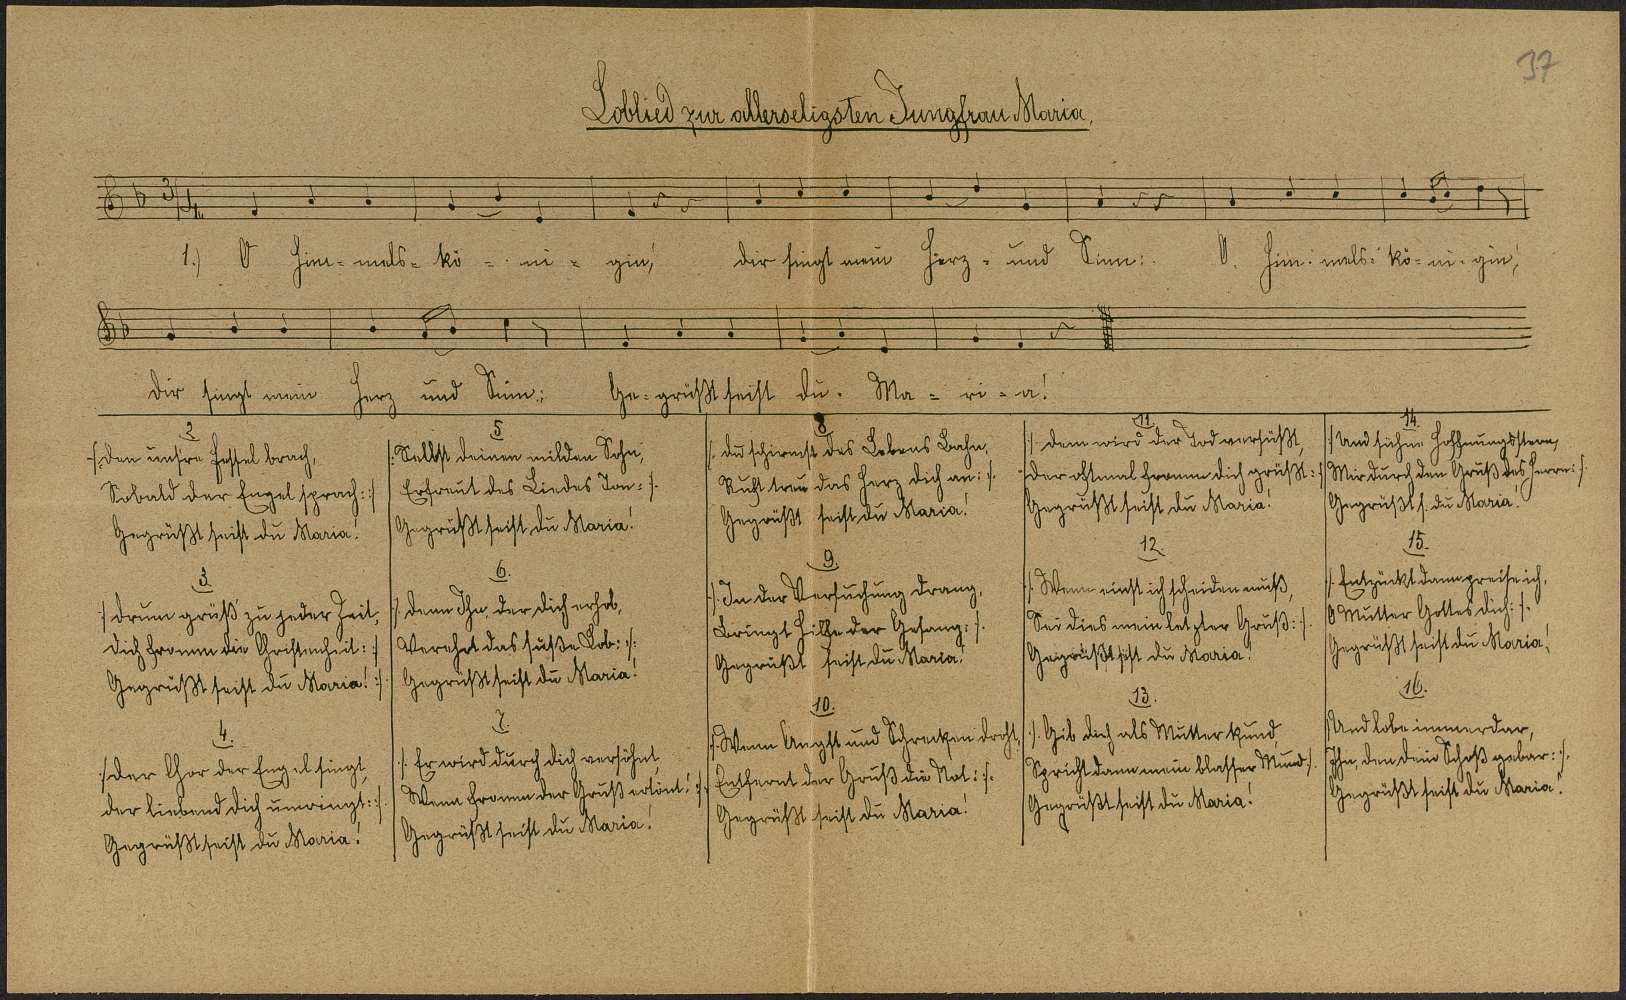 37
Loblied zur allerseligsten Jungfrau Maria.
1.) O Him-mels-kö-ni-gin, dir singt mein Herz-und Sinn: O. Him-mels-kö-ni-gin,
dir singt mein Herz und Sinn: Ge-grüßt seist du. Ma-ri-a!
2
/: den unsre Fessel brach,
Sobald der Engel sprach: :/
Gegrüßt seist du Maria!
3
/: drum grüß' zu jeder Zeit,
dich fromm die Christenheit: :/
Gegrüßt seist du Maria! :/
4.
/: der Chor der Engel singt,
der liebend dich umringt: :/
Gegrüßt seist du Maria!
5
/: Selbst deinen milden Sohn,
Erfreut des Liedes Ton: :/
Gegrüßt seist du Maria!
6.
/: denn Ihn, der dich erhob,
Verehrt das süße Lob: :/:
Gegrüßt seist du Maria!
7.
/: Er wird durch dich versöhnt,
Wenn fromm der Gruß ertönt! :/
Gegrüßt seist du Maria!
8
/: du schirmst des Lebens Bahn,
Ruft treu das Herz dich an: :/
Gegrüßt seist du Maria!
9.
/: In der Versuchung drang,
Bringt Hilfe der Gesang: :/
Gegrüßt seist du Maria!
10.
/: Wenn Angst und Schrecken droht,
Entfernt der Gruß die Not: :/
Gegrüßt seist du Maria!
11
/: dem wird der Tod versüßt,
der oftmal fromm dich grüßt: :/
Gegrüßt seist du Maria!
12.
/: Wenn einst ich scheiden muß,
Sei dies mein letzter Gruß: :/
Gegrüßt seist du Maria!
13.
/: Gib dich als Mutter kund
Spricht dann mein blasser Mund :/
Gegrüßt seist du Maria!
14.
/: Und sühne Hoffnungsstern,
Mir durch den Gruß des Herrn: :/
Gegrüßt s. du Maria!
15.
/: Entzückt dann preise ich,
O Mutter Gottes dich: :/
Gegrüßt seist du Maria!
16.
/: Und lobe immerdar,
Ihn, den dein Schoß gebar: :/
Gegrüßt seist du Maria!